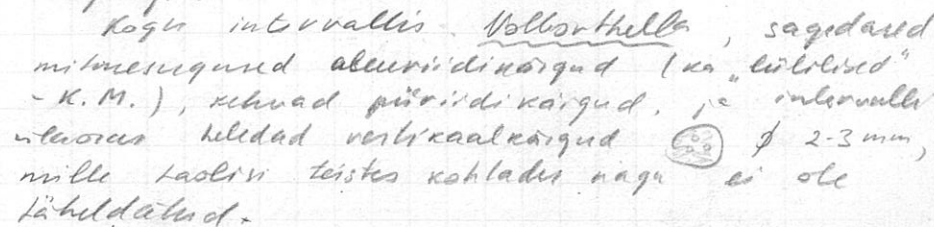 Kogu intervallis Volborthella, sagedased
mitmesugused aleuriidikäigud (ka „lülilised"
- K.M.), rehvad püriidikäigud, ja intervalli
ülaosas heledad vertikaalkäigud ⌀ 2-3 mm,
mille taolisi teistes kohtades nagu ei ole
täheldatud.